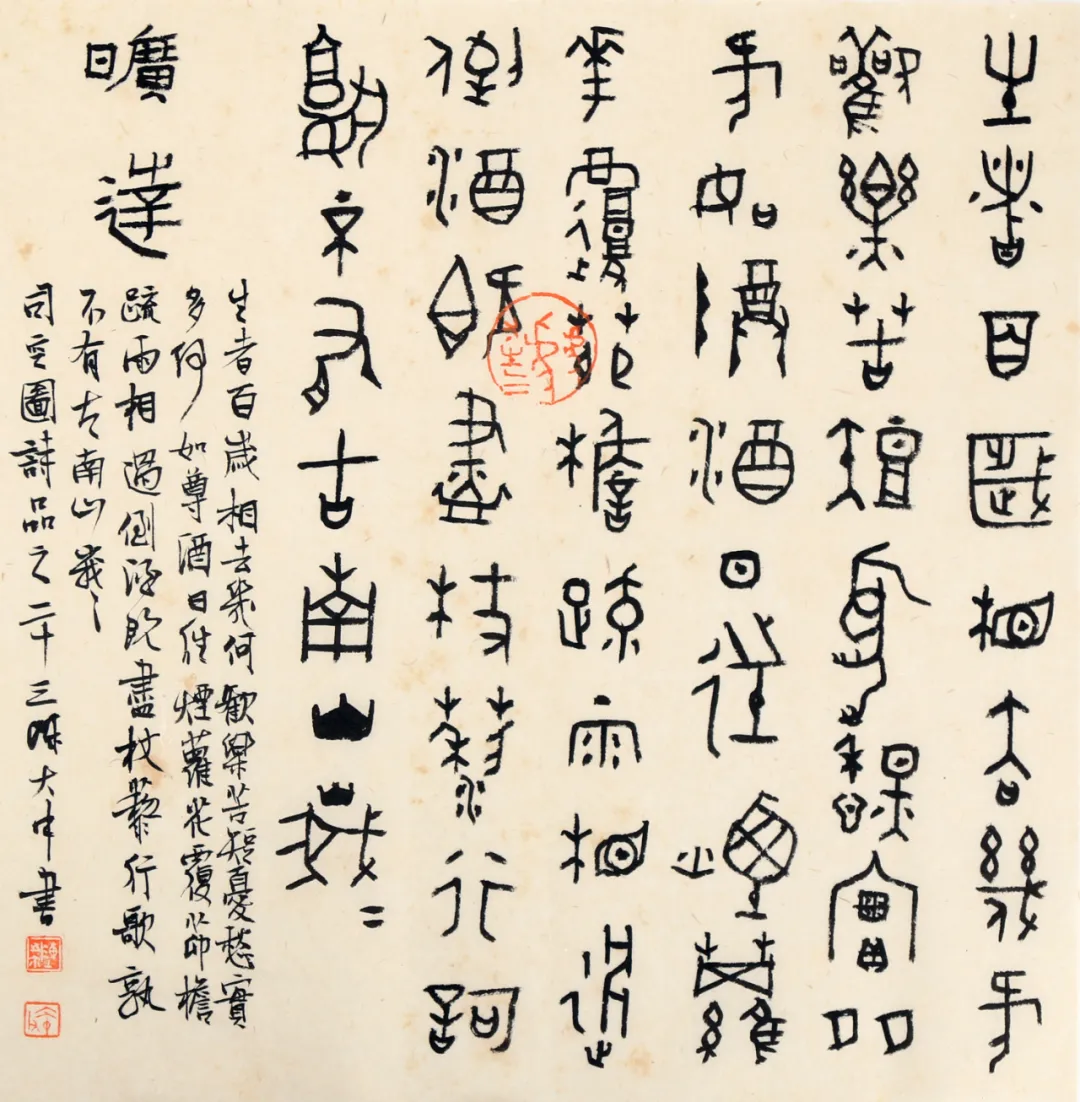 生者百歲相去幾何
歡樂苦短憂愁實多
何如尊酒日往煙蘿
花覆茆檐疏雨相過
倒酒既盡杖藜行歌
孰不有古南山峨=
曠達
生者百歲相去幾何歡樂苦短憂愁實
多何如尊酒日往煙蘿花覆茆檐
疏雨相過倒酒既盡杖藜行歌孰
不有古南山峨〻
司空圖詩品之二十三陳大中書